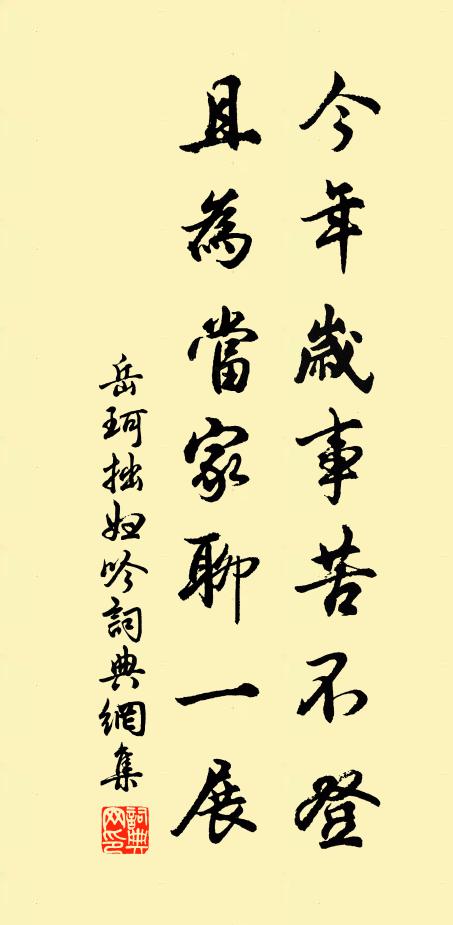 今年歲事苦不登
且為當家聊一展
岳珂拙婦吟詞典網集
詞典網印